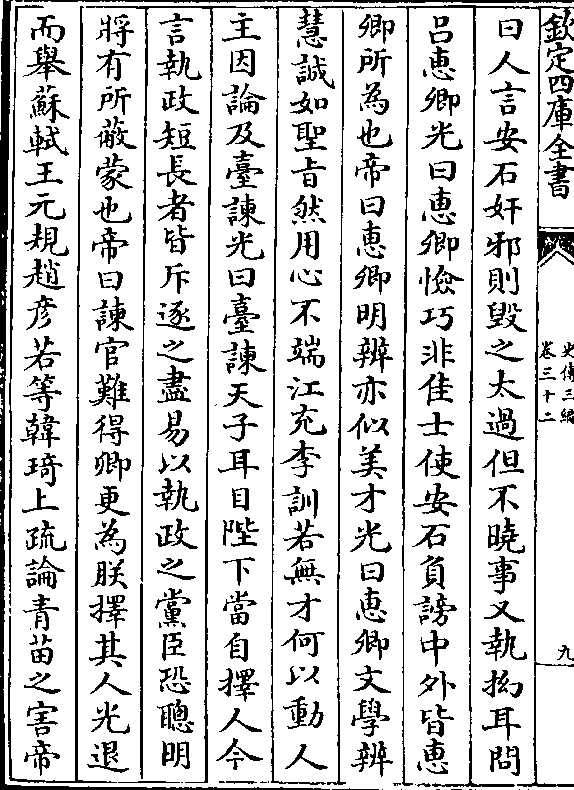 欽定四庫全書
史傳三編
卷三十二
九
曰人言安石奸邪則毁之太過但不曉事又執拗耳問
吕惠卿光曰惠卿憸巧非佳士使安石負謗中外皆惠
卿所為也帝曰惠卿明辨亦似美才光曰惠卿文學辨
慧誠如聖旨然用心不端江充李訓若無才何以動人
主因論及臺諫光曰臺諫天子耳目陛下當自擇人今
言執政短長者皆斥逐之盡易以執政之黨臣恐聰明
將有所蔽蒙也帝曰諫官難得卿更為朕擇其人光退
而舉蘇軾王元規趙彦若等韓琦上疏論青苗之害帝